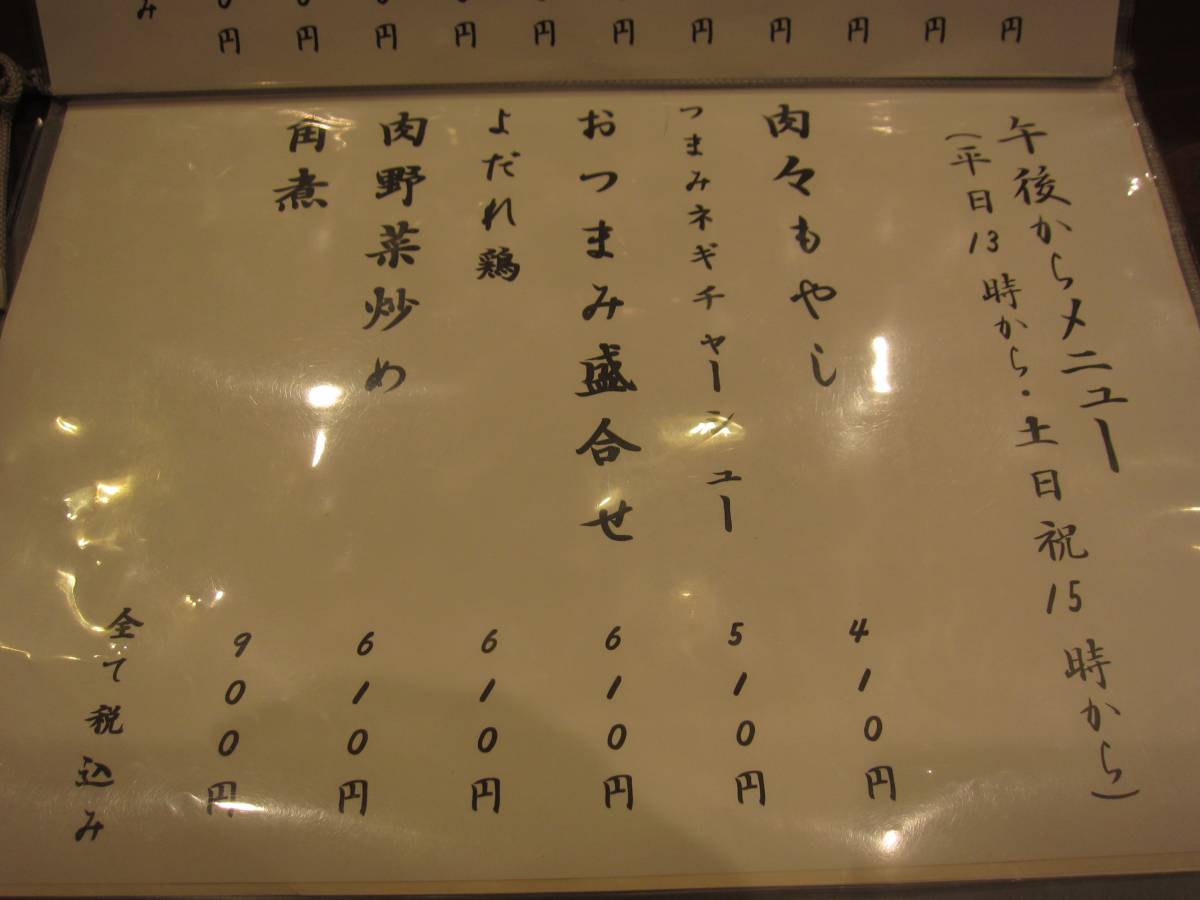 み
0円
0円
0円
0円
円
円
円
円
円
円
円
午後からメニュー
(平日13時から・土日祝15時から)
肉々もやし 410円
つまみネギチャーシュー 510円
おつまみ盛合せ 610円
よだれ鶏 610円
肉野菜炒め 610円
角煮 900円
全て税込み